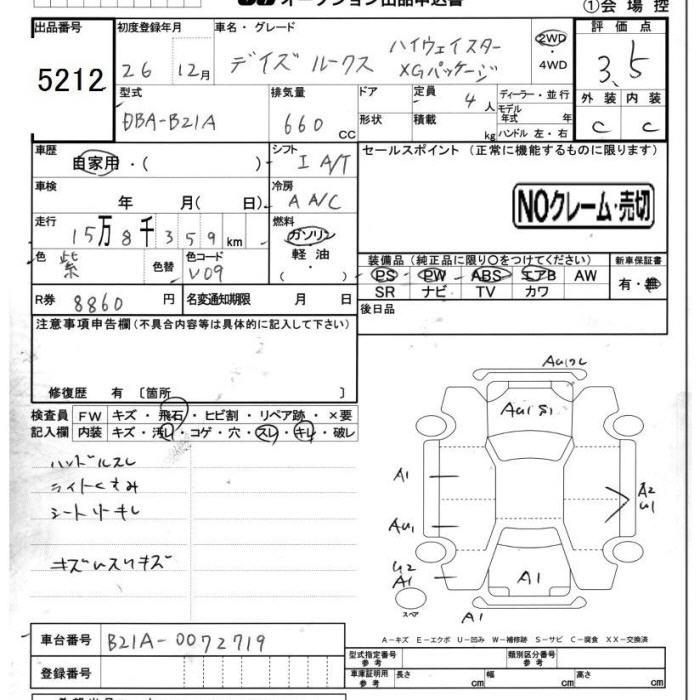 オークション出品申込書
①会場控
出品番号 初度登録年月 車名・グレード 評価点
5212 26 12月 デイズ ルークス ハイウェイスター XGパッケージ 2WD・4WD 3.5
型式 排気量 ドア 定員 4人 ディーラー・並行 外装 内装
DBA-B21A 660 cc 形状 積載 kg モデル年式 年式 ハンドル 左・右 C C
車歴 自家用・( ) シフト I A/T セールスポイント (正常に機能するものに限ります)
車検 年 月( 日) 冷房 A A/C
NOクレーム・売切
走行 15万8千359km 燃料 ガソリン 軽油 ( ・ )
色 紫 色替 色コード V09
装備品(純正品に限り○をつけてください) 新車保証書
PS PW ABS エアB AW 有・無
SR ナビ TV カワ
R券 8860円 名変通知期限 月 日 後日品
注意事項申告欄(不具合内容等は具体的に記入して下さい)
修復歴 有〔箇所 〕
検査員 FW キズ・飛石・ヒビ割・リペア跡・×要
記入欄 内装 キズ・汚れ・コゲ・穴・スレ・キレ・破レ
ハンドルスレ
ライトくすみ
シートリキレ
A1
AU1
U2
A1
A1
A1
A2
U1
スペア
A-キズ E-エクボ U-凹み W-補修跡 S-サビ C-腐食 XX-交換済
車台番号 B21A-0072719 型式指定番号 参考 類別区分番号 参考
登録番号 車庫証明用 参考 長さ cm 幅 cm 高さ cm